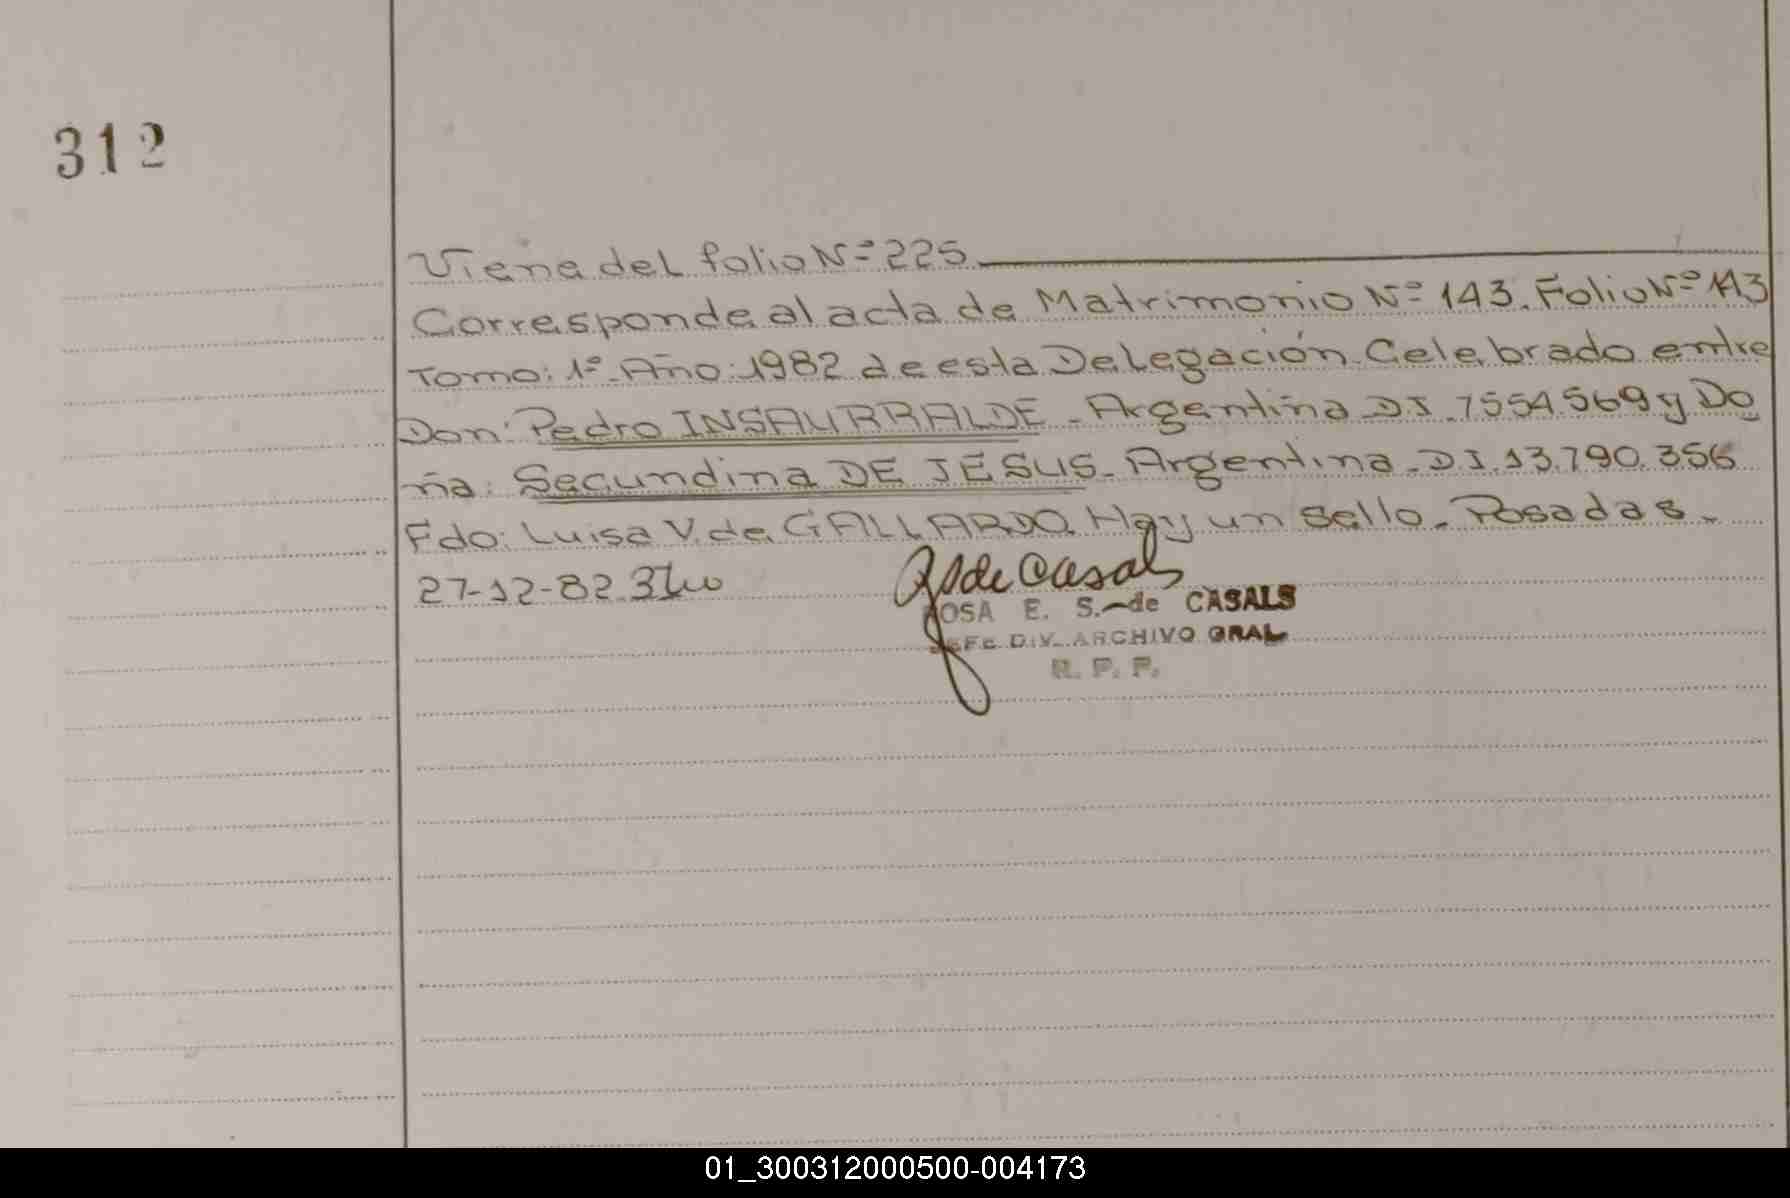 312
Viene del folio Nº 225
Corresponde al acta de Matrimonio Nº 143. Folio Nº 143
Tomo: 1º. Año: 1982 de esta Delegación. Celebrado entre
Don: Pedro INSAURRALDE - Argentina D.I. 7554569 y Do
ña: Secundina DE JESUS - Argentina - D.I. 13.790.356
Fdo: Luisa V. de GALLARDO. Hay un sello. Posadas.
27-12-82
de Casals
ROSA E. S. de CASALS
JEFE DIV. ARCHIVO GRAL
R. P. P.
01_300312000500-004173